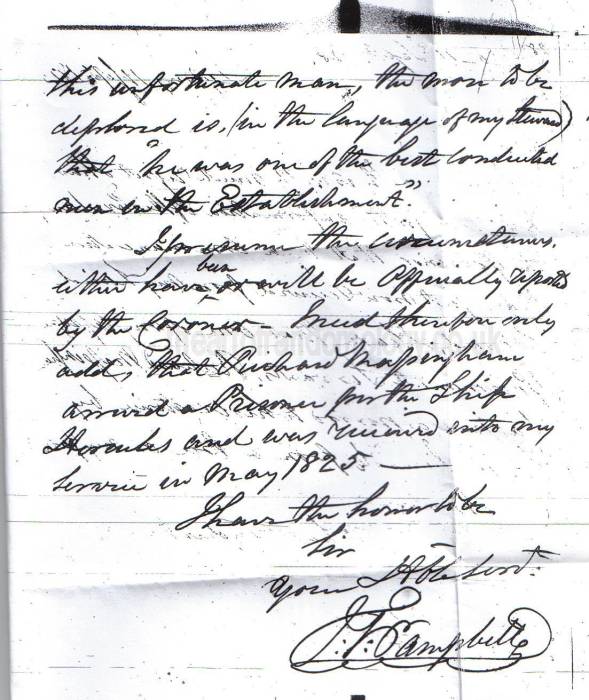 this unfortunate man, the more to be
deplored is, (in the language of my Steward)
that "he was one of the best conducted
men in the Establishment".
I presume the circumstances,
either have been or will be Officially reported
by the Coroner - I need therefore only
add, that Richard Massingham
arrived a Prisoner per the Ship
Hercules and was received into my
service in May 1825. —
I have the honor to be
Sir
Your Obt Servt.
J. F. Campbell